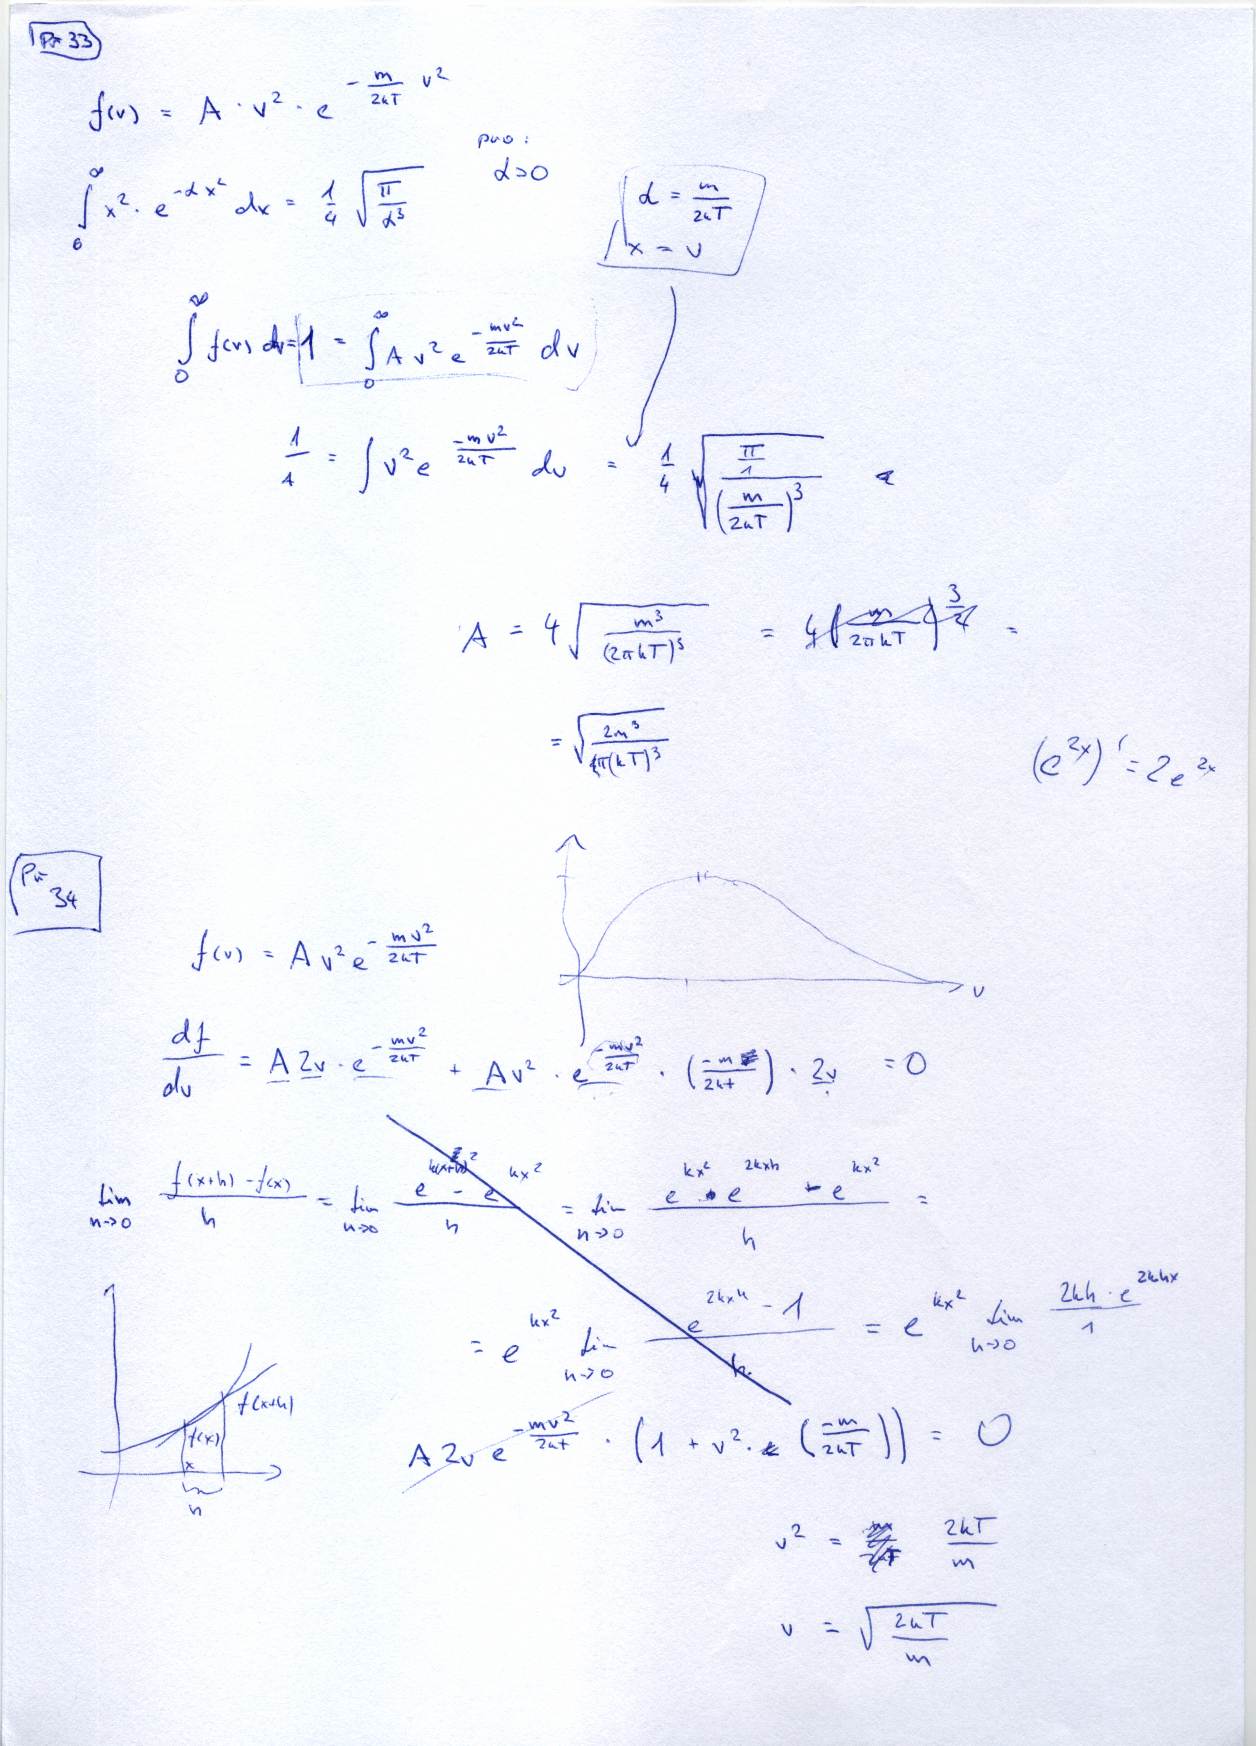 Př 33
f(v) = A · v² · e^(-m/2kT v²)
∫₀^∞ x² · e^(-αx²) dx = 1/4 √(π/α³)
pro:
α>0
α = m/2kT
x = v
∫₀^∞ f(v) dv = 1 = ∫₀^∞ A v² e^(-mv²/2kT) dv
1/A = ∫ v² e^(-mv²/2kT) dv = 1/4 √((π/1)/(m/2kT)³)
A = 4 √(m³/(2πkT)³) = 4(m/2πkT)^(3/2) =
= √(2m³/π(kT)³)
(e^(2x))' = 2e^(2x)
Př 34
f(v) = A v² e^(-mv²/2kT)
v
df/dv = A 2v · e^(-mv²/2kT) + A v² · e^(-mv²/2kT) · (-m/2kT) · 2v = 0
lim h→0 (f(x+h) - f(x))/h = lim h→0 (e^(k(x+h)²) - e^(kx²))/h = lim h→0 (e^(kx²) · e^(2kxh) - e^(kx²))/h =
= e^(kx²) lim h→0 (e^(2kxh) - 1)/h = e^(kx²) lim h→0 (2kh · e^(2khx))/1
f(x+h)
f(x)
x
h
A 2v e^(-mv²/2kT) · (1 + v² · (-m/2kT)) = 0
v² = 2kT/m
v = √(2kT/m)